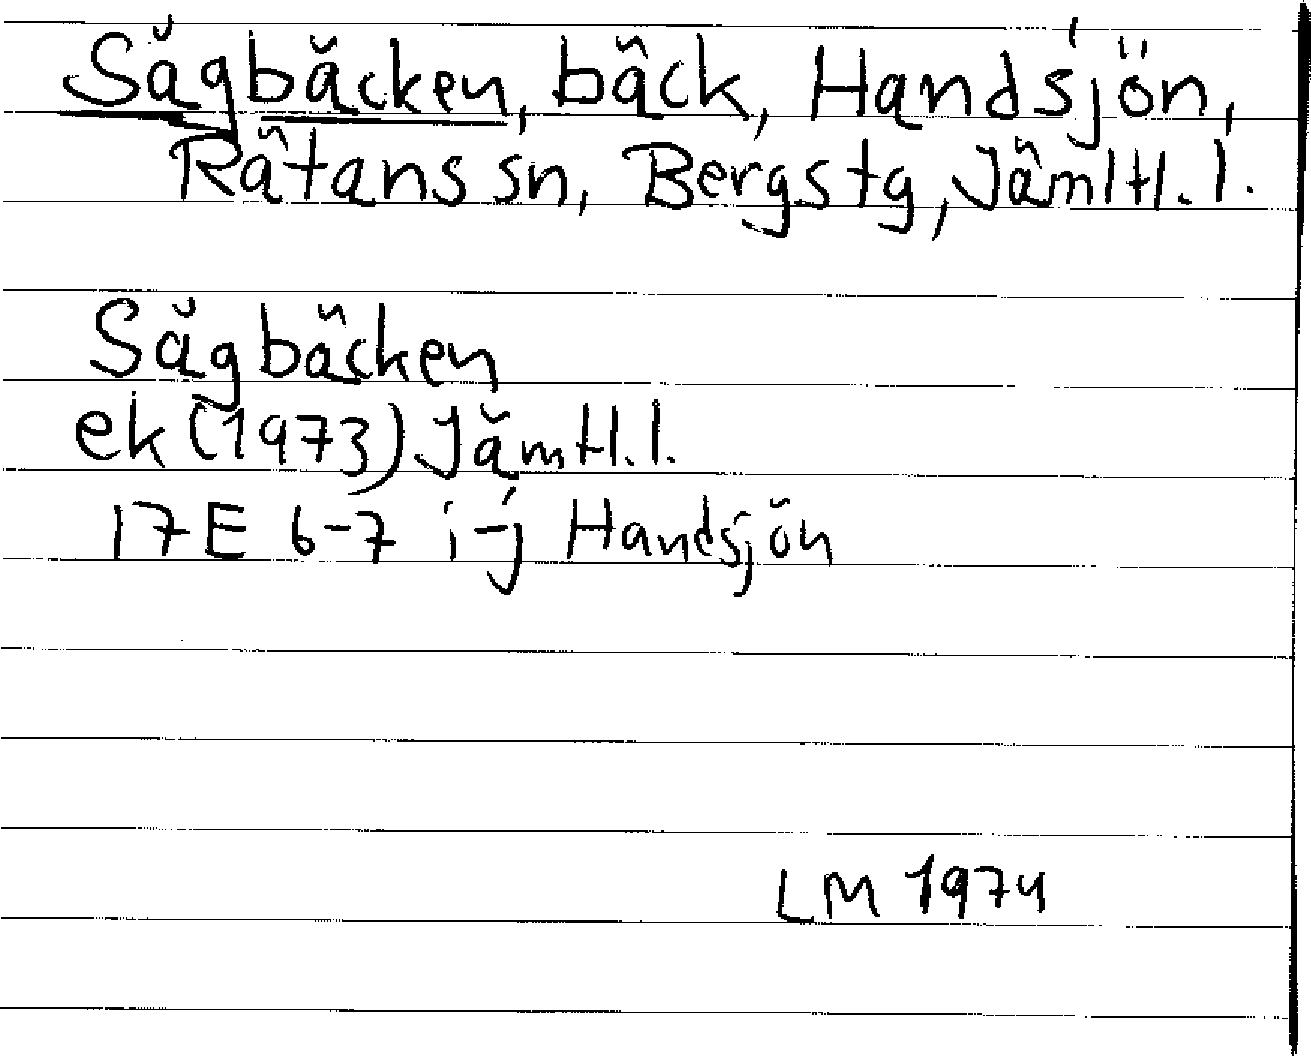 Sågbäcken, bäck, Handsjön,
Rätans sn, Bergs tg, Jämtl. l.
Sågbäcken
ek (1973) Jämtl. l.
17E 6-7 i-j Handsjön
LM 1974